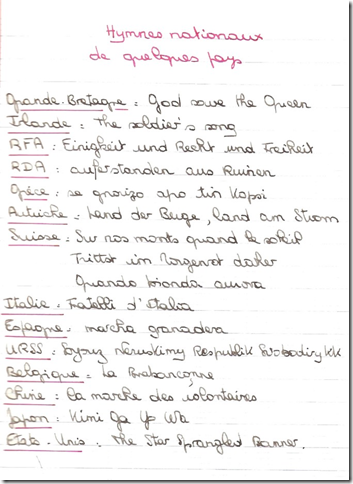 Hymnes nationaux
de quelques pays
Grande-Bretagne : God save the Queen
Irlande : The soldier's song
RFA : Einigkeit und Recht und Freiheit
RDA : auferstanden aus Ruinen
Grèce : se gnorizo apo tin Kopsi
Autriche : Land der Berge, land am Strom
Suisse : Sur nos monts quand le soleil
Trittst im Morgenrot daher
Quando bionda aurora
Italie : Fratelli d'Italia
Espagne : marcha granadera
URSS : Soyouz Neruskimy Respublik Svobodnykh
Belgique : La Brabançonne
Chine : la marche des volontaires
Japon : Kimi Ga Yo Wa
Etats-Unis : The Star Sprangled Banner.